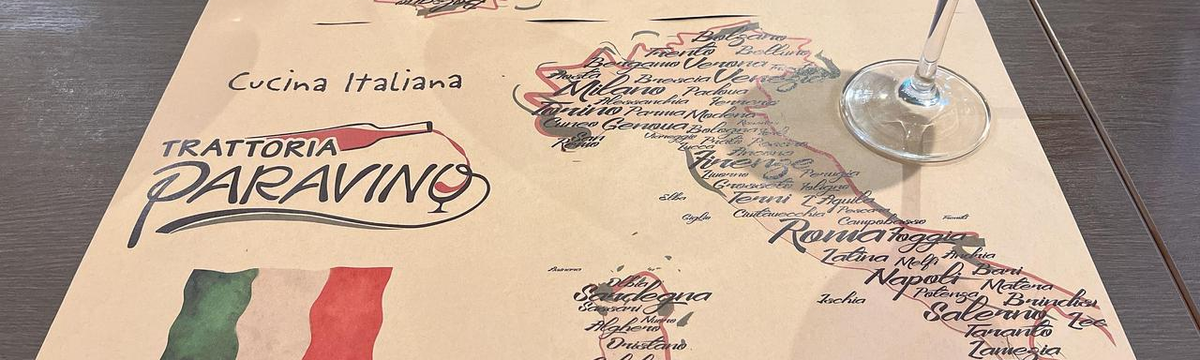 Cucina Italiana
TRATTORIA
PARAVINO
Bolzano
Trento Belluno
Bergamo Verona
Aosta Brescia Venezia
Milano Padova
Alessandria Ferrara
Torino Parma Modena
Cuneo Genova Bologna
San Remo
Lucca Prato
Firenze
Livorno Perugia
Grosseto Foligno
Elba Terni L'Aquila
Giglio Civitavecchia Pescara
Campobasso Tremiti
Roma Foggia
Latina Melfi Andria
Napoli Bari
Ischia Potenza Matera
Salerno Brindisi
Taranto Lec
Lamezia
Olbia
Sardegna
Sassari Nuoro
Alghero
Oristano